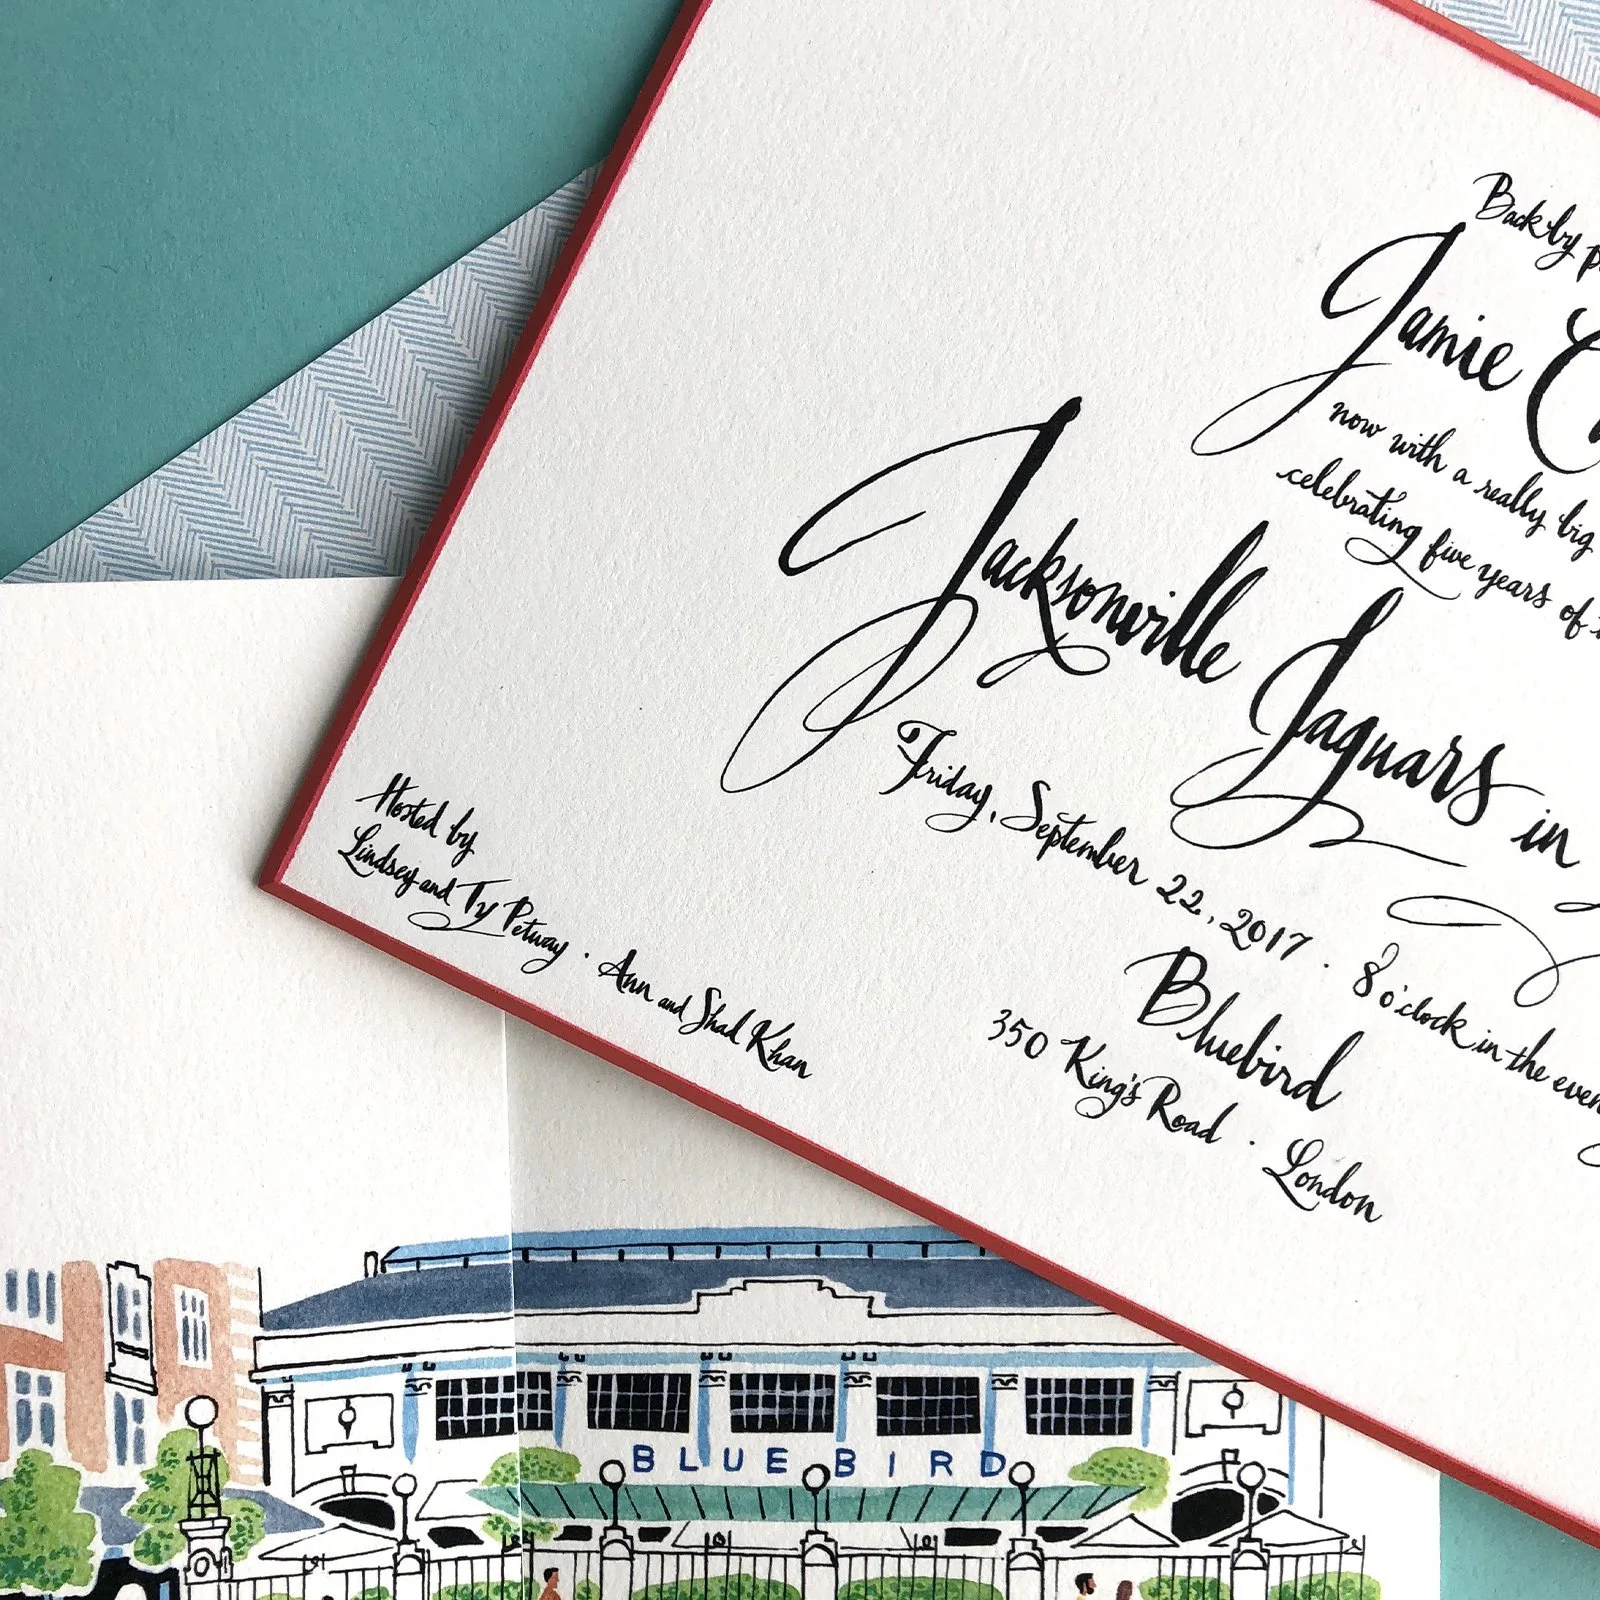 Back by
Jamie
now with a really big
celebrating five years of
Jacksonville Jaguars in
Friday, September 22, 2017 · 8 o'clock in the
Bluebird
350 King's Road · London
Hosted by
Lindsey and Ty Petway · Ann and Shad Khan
BLUEBIRD